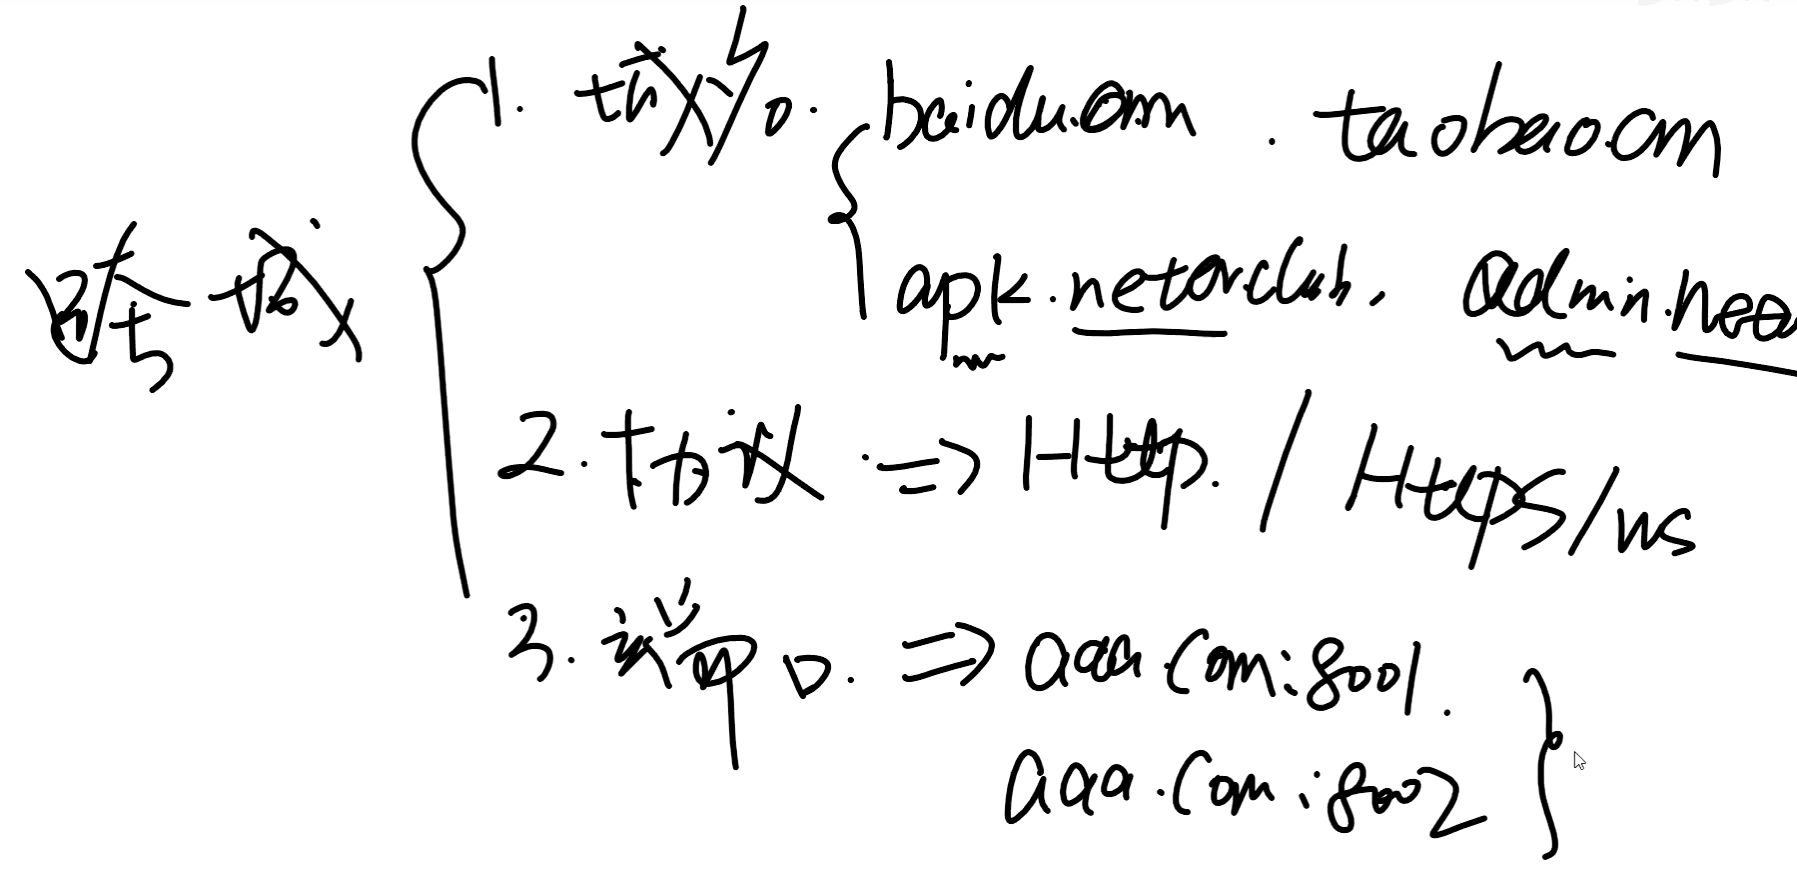 跨域
1. 域名. baidu.com . taobao.com
apk.netor.club. admin.neto
2. 协议 => Http. / Https/ws
3. 端口. => aaa.com:8001.
aaa.com:8002